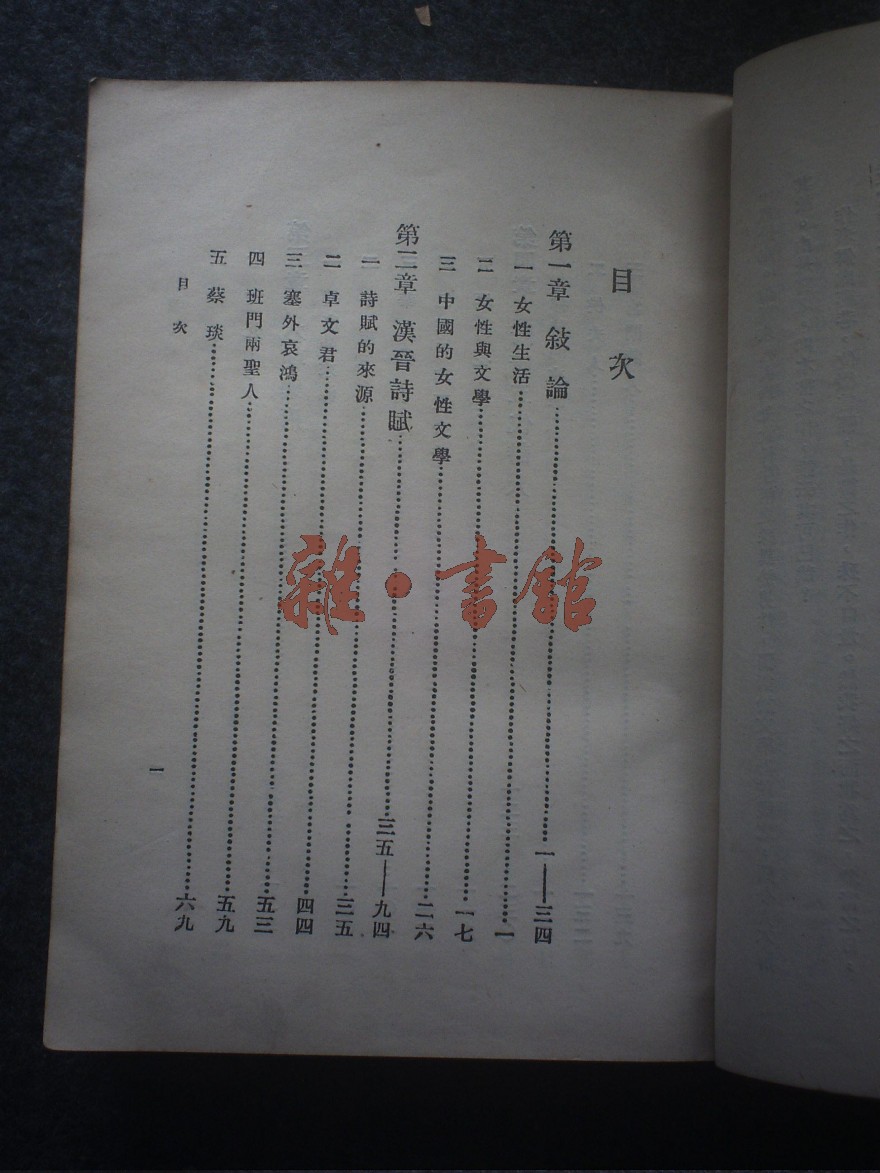 目次
第一章 敍論……一——三四
一 女性生活……一
二 女性與文學……一七
三 中國的女性文學……二六
第二章 漢晉詩賦……三五——九四
一 詩賦的來源……三五
二 卓文君……四四
三 塞外哀鴻……五三
四 班門兩聖人……五九
五 蔡琰……六九
目次
一
雜·書館